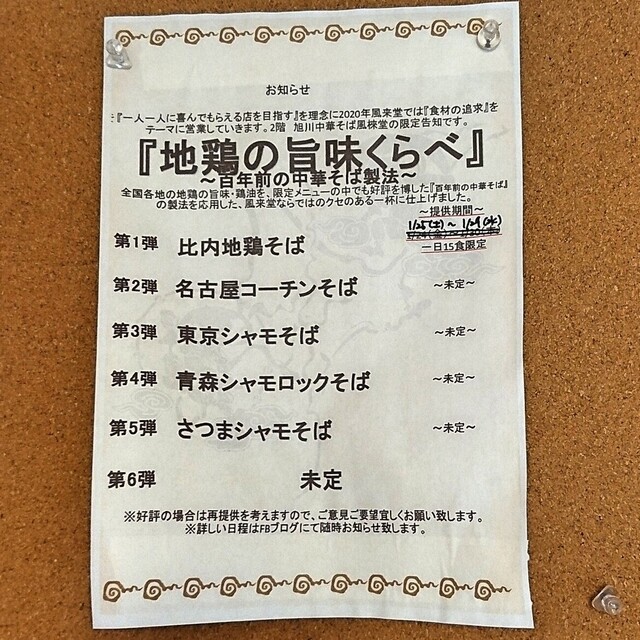 お知らせ
『一人一人に喜んでもらえる店を目指す』を理念に2020年風来堂では『食材の追求』を
テーマに営業していきます。2階 旭川中華そば風來堂の限定告知です。
『地鶏の旨味くらべ』
～百年前の中華そば製法～
全国各地の地鶏の旨味・鶏油を、限定メニューの中でも好評を博した『百年前の中華そば』
の製法を応用した、風来堂ならではのクセのある一杯に仕上げました。
～提供期間～
1/25(土)～1/29(水)
一日15食限定
第1弾 比内地鶏そば
第2弾 名古屋コーチンそば ～未定～
第3弾 東京シャモそば ～未定～
第4弾 青森シャモロックそば ～未定～
第5弾 さつまシャモそば ～未定～
第6弾 未定
※好評の場合は再提供を考えますので、ご意見ご要望宜しくお願い致します。
※詳しい日程はFBブログにて随時お知らせ致します。